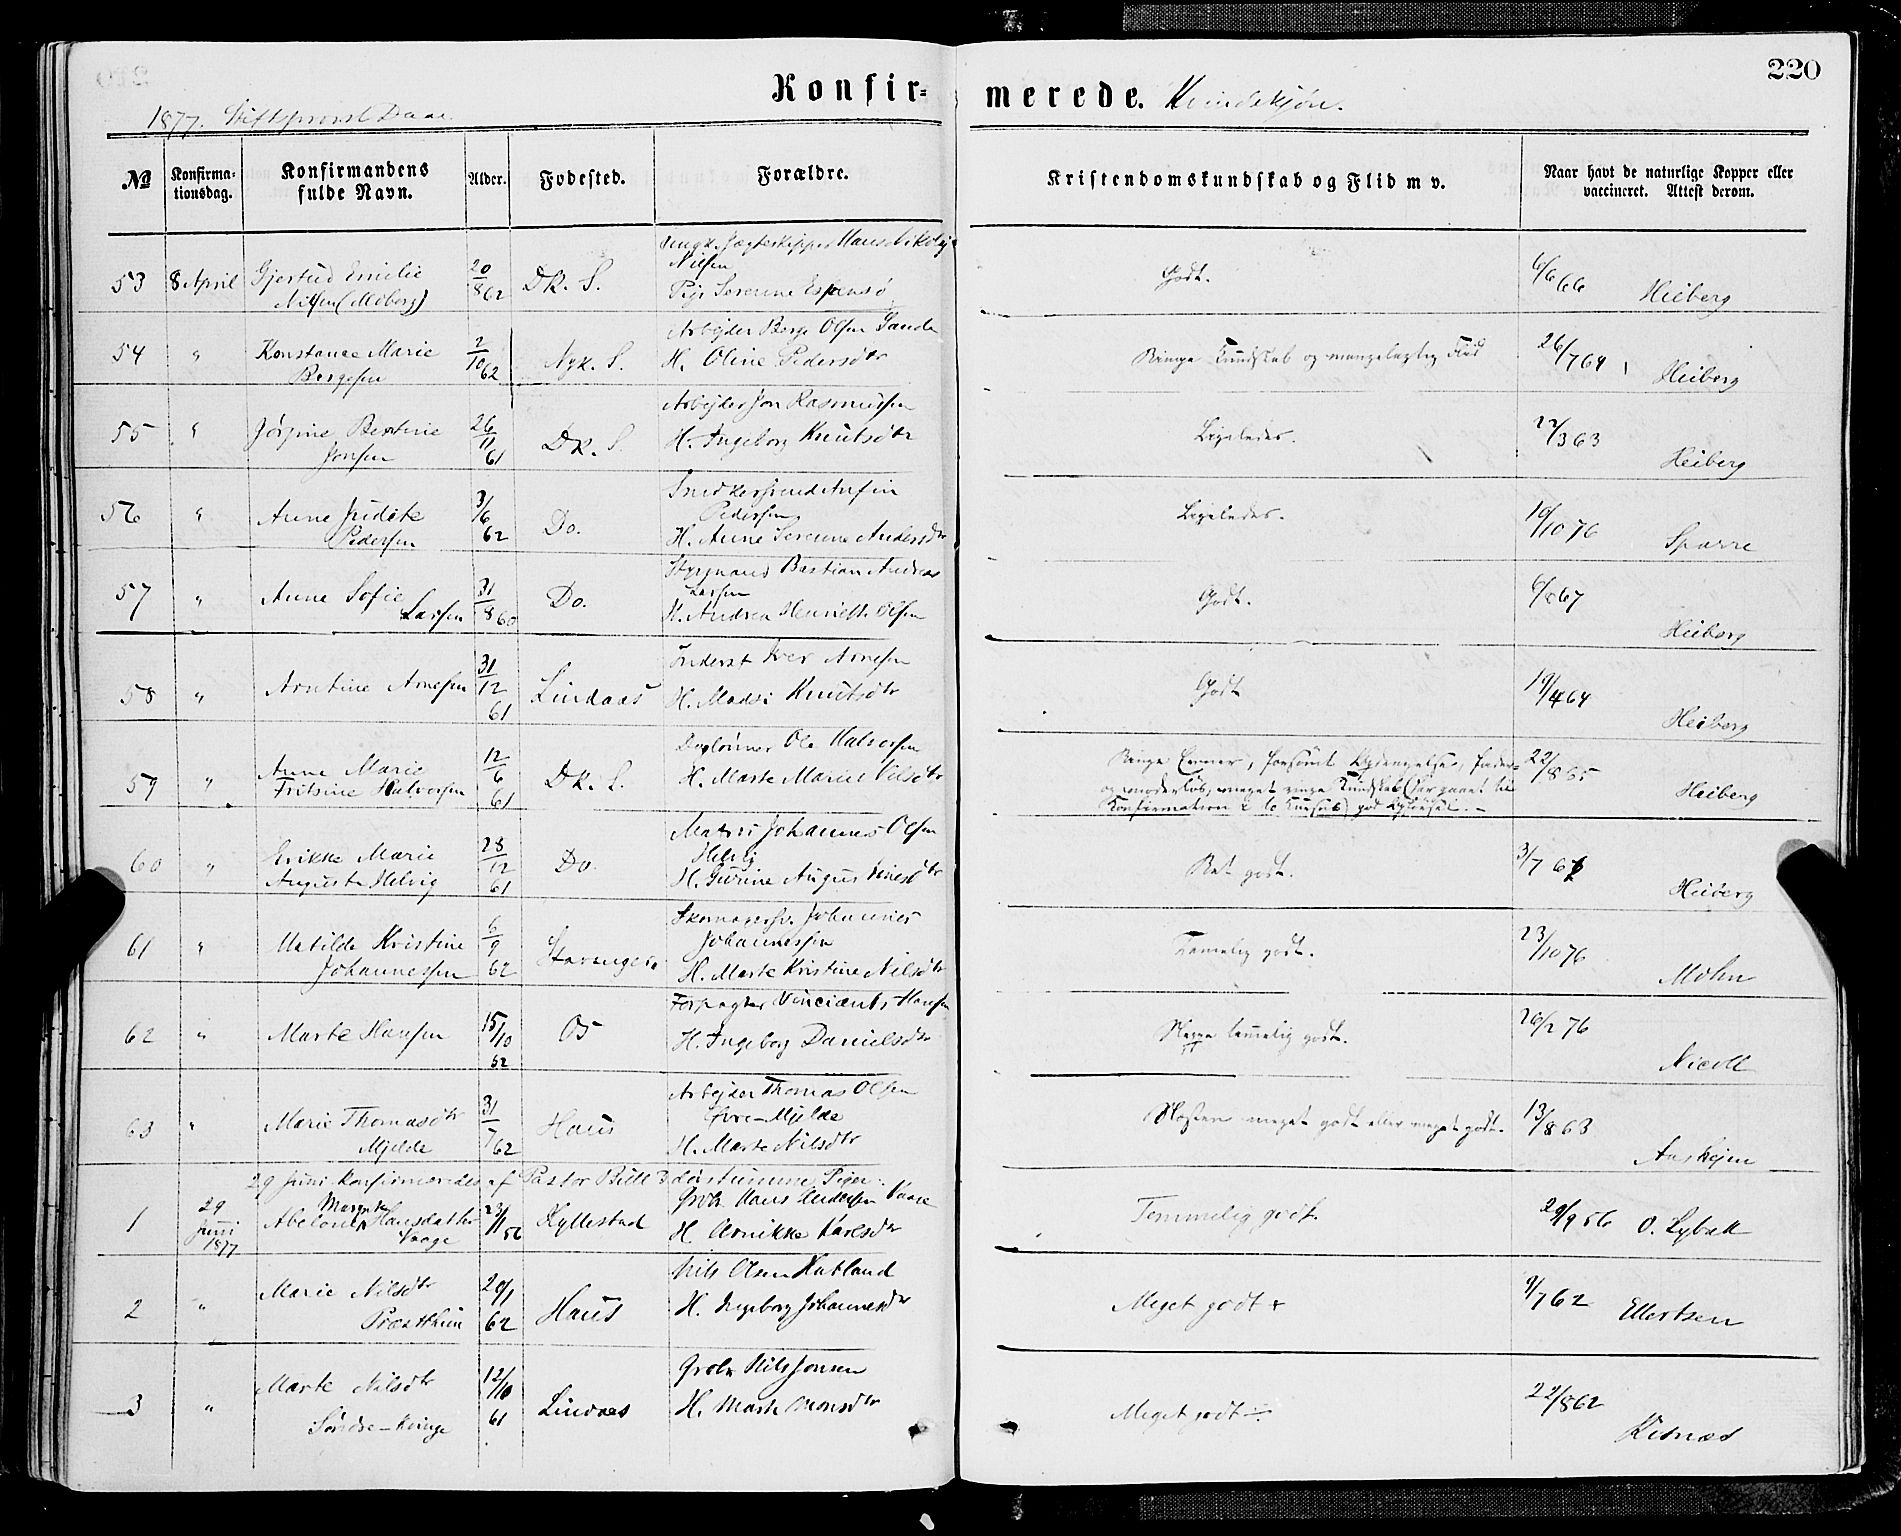 220
Konfir= merede. Kvindekjön.
1877. Stiftsprovst Daae.
№ Konfirma-tionsdag. Konfirmandens fulde Navn. Alder. Fødested. Forældre. Kristendomskundskab og Flid m v. Naar havt de naturlige Kopper eller vaccineret. Attest derom.
Ungk. Jægteskipper Hans Nikolaj
53 8 April Gjertud Emilie 20/8 62 Dk. S. Nilsen Godt. 6/6 66 Heiberg
Nilsen (Moberg) Pige Serene
Arbejder Berge Olsen Sande
54 " Konstance Marie 2/10 62 Nyk. S. H. Oline Pedersdtr Ringe Kundskab og mangelagtig Flid 26/7 64 Heiberg
Bergesen
Arbejder Jon Rasmussen
55 " Jørgine Bertine 26/11 61 Dk. S. H. Ingeborg Knutsdtr Ligeledes. 22/3 63 Heiberg
Jonsen
Snedkersvend Anfin
56 " Anne Judite 3/6 62 Do. Pedersen Ligeledes. 19/10 76 Sparre
Pedersen H. Anne Serene Andersdtr
Styrmand Bastian Andreas
57 " Anne Sofie 31/8 60 Do. Larsen Godt. Heiberg
Larsen H. Andrea Henriette Olsen
Inderst Iver Arnesen
58 " Arntine Arnesen 31/12 61 Lindaas H. Madsi Knutsdtr Godt 19/4 64 Heiberg
Daglønner Ole Halvorsen
59 " Anne Marie 12/6 61 Dk. S. H. Marte Marie Nilsdtr Ringe Evner, forsømt Opdragelse, fader= 22/8 65 Heiberg
Fritsine Halvorsen og moderløs, meget ringe Kundskab (har gaaet til
Konfirmation i to Kursus) god Opførsel. -
Matros Johannes Olsen
60 " Erikke Marie 28/12 61 Do. Helvig Ret godt. 3/7 Heiberg
Auguste Helvig H. Gurine
Skomagersv. Johannes
61 " Matilde Kristine 6/9 62 Stavanger Johannessen Temelig godt. 23/10 76 Mohn
Johannessen H. Marte Kristine Nilsdtr
Forpagter Vinciants Hansen
62 " Marte Hansen 15/10 52 Os H. Ingeborg Danielsdtr temelig godt. 26/2 76 Nicoll
Arbejder Thomas Olsen
63 " Marie Thomasdtr 31/7 62 Haus Øvre-Mjelde Næsten meget godt eller meget godt. 13/8 63
Mjelde H. Marte Nilsdtr
29 Juni Konfirmeredes af Pastor Bille 3 døvstumme Piger.
1 29 Juni 1877 Abelone Margrete Hansdatter 23/11 56 Hyllestad Grdbr Hans Andersen Vaage Temmelig godt. 29/9 56 O. Lybæk
Vaage H. Arnikke Karlsdtr
Nils Olsen Hatland
2 " Marie Nilsdtr 20/1 62 Haus H. Ingeborg Johannesdtr Meget godt + 9/7 62 Ellertsen
Præsttun
Grdbr Nils Jonsen
3 " Marte Nilsdtr 12/10 61 Lindaas H. Marte Monsdtr Meget godt ÷ 22/8 62
Søndre-Kvinge